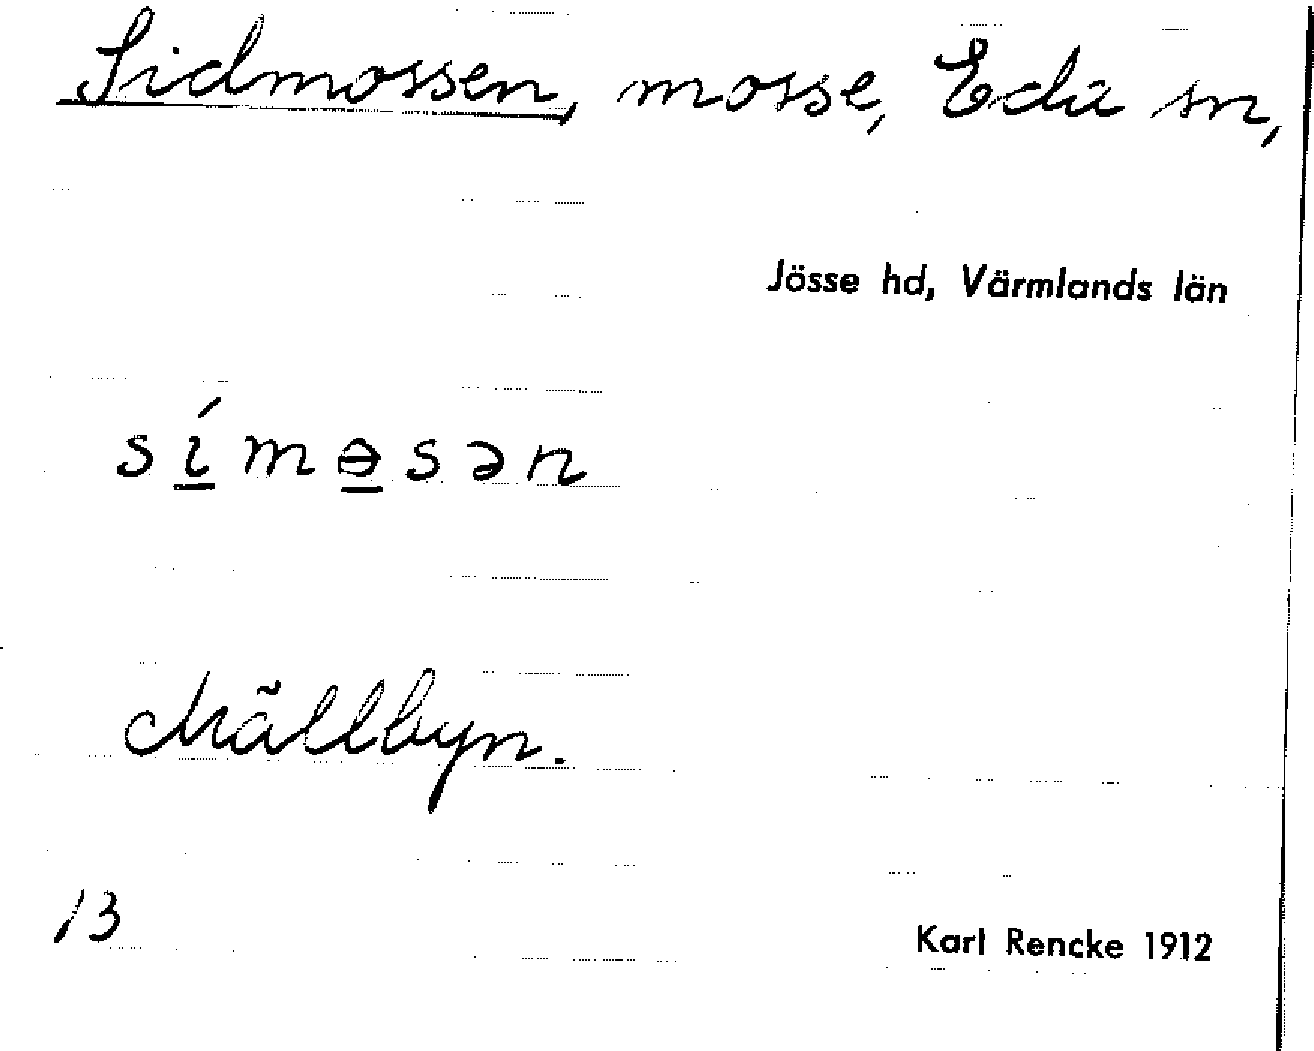 Sidmossen, mosse, Eda sn,
Jösse hd, Värmlands län
sı́mɵsən
Mällbyn.
13
Karl Rencke 1912